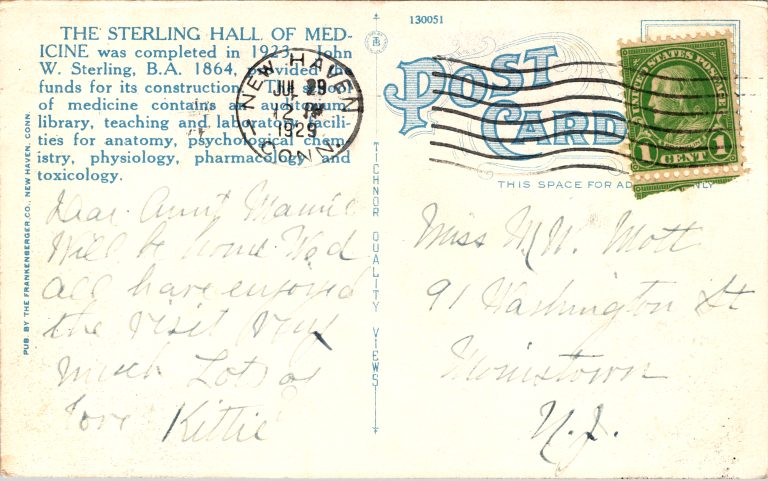 THE STERLING HALL OF MED-
ICINE was completed in 1923. John
W. Sterling, B.A. 1864, provided the
funds for its construction. This school
of medicine contains an auditorium,
library, teaching and laboratory facili-
ties for anatomy, psychological chem-
istry, physiology, pharmacology and
toxicology.
NEW HAVEN
JUL 29
12 PM
1929
CONN.
PUB. BY THE FRANKENBERGER CO., NEW HAVEN, CONN.
Dear Aunt Mamie
Will be home Wed
all have enjoyed
the visit very
much Lots of
love Kittie
TICHNOR QUALITY VIEWS
130051
POST
CARD
UNITED STATES POSTAGE
1 CENT 1
THIS SPACE FOR AD ONLY
Miss M. W. Mott
91 Washington St
Morristown
N.J.